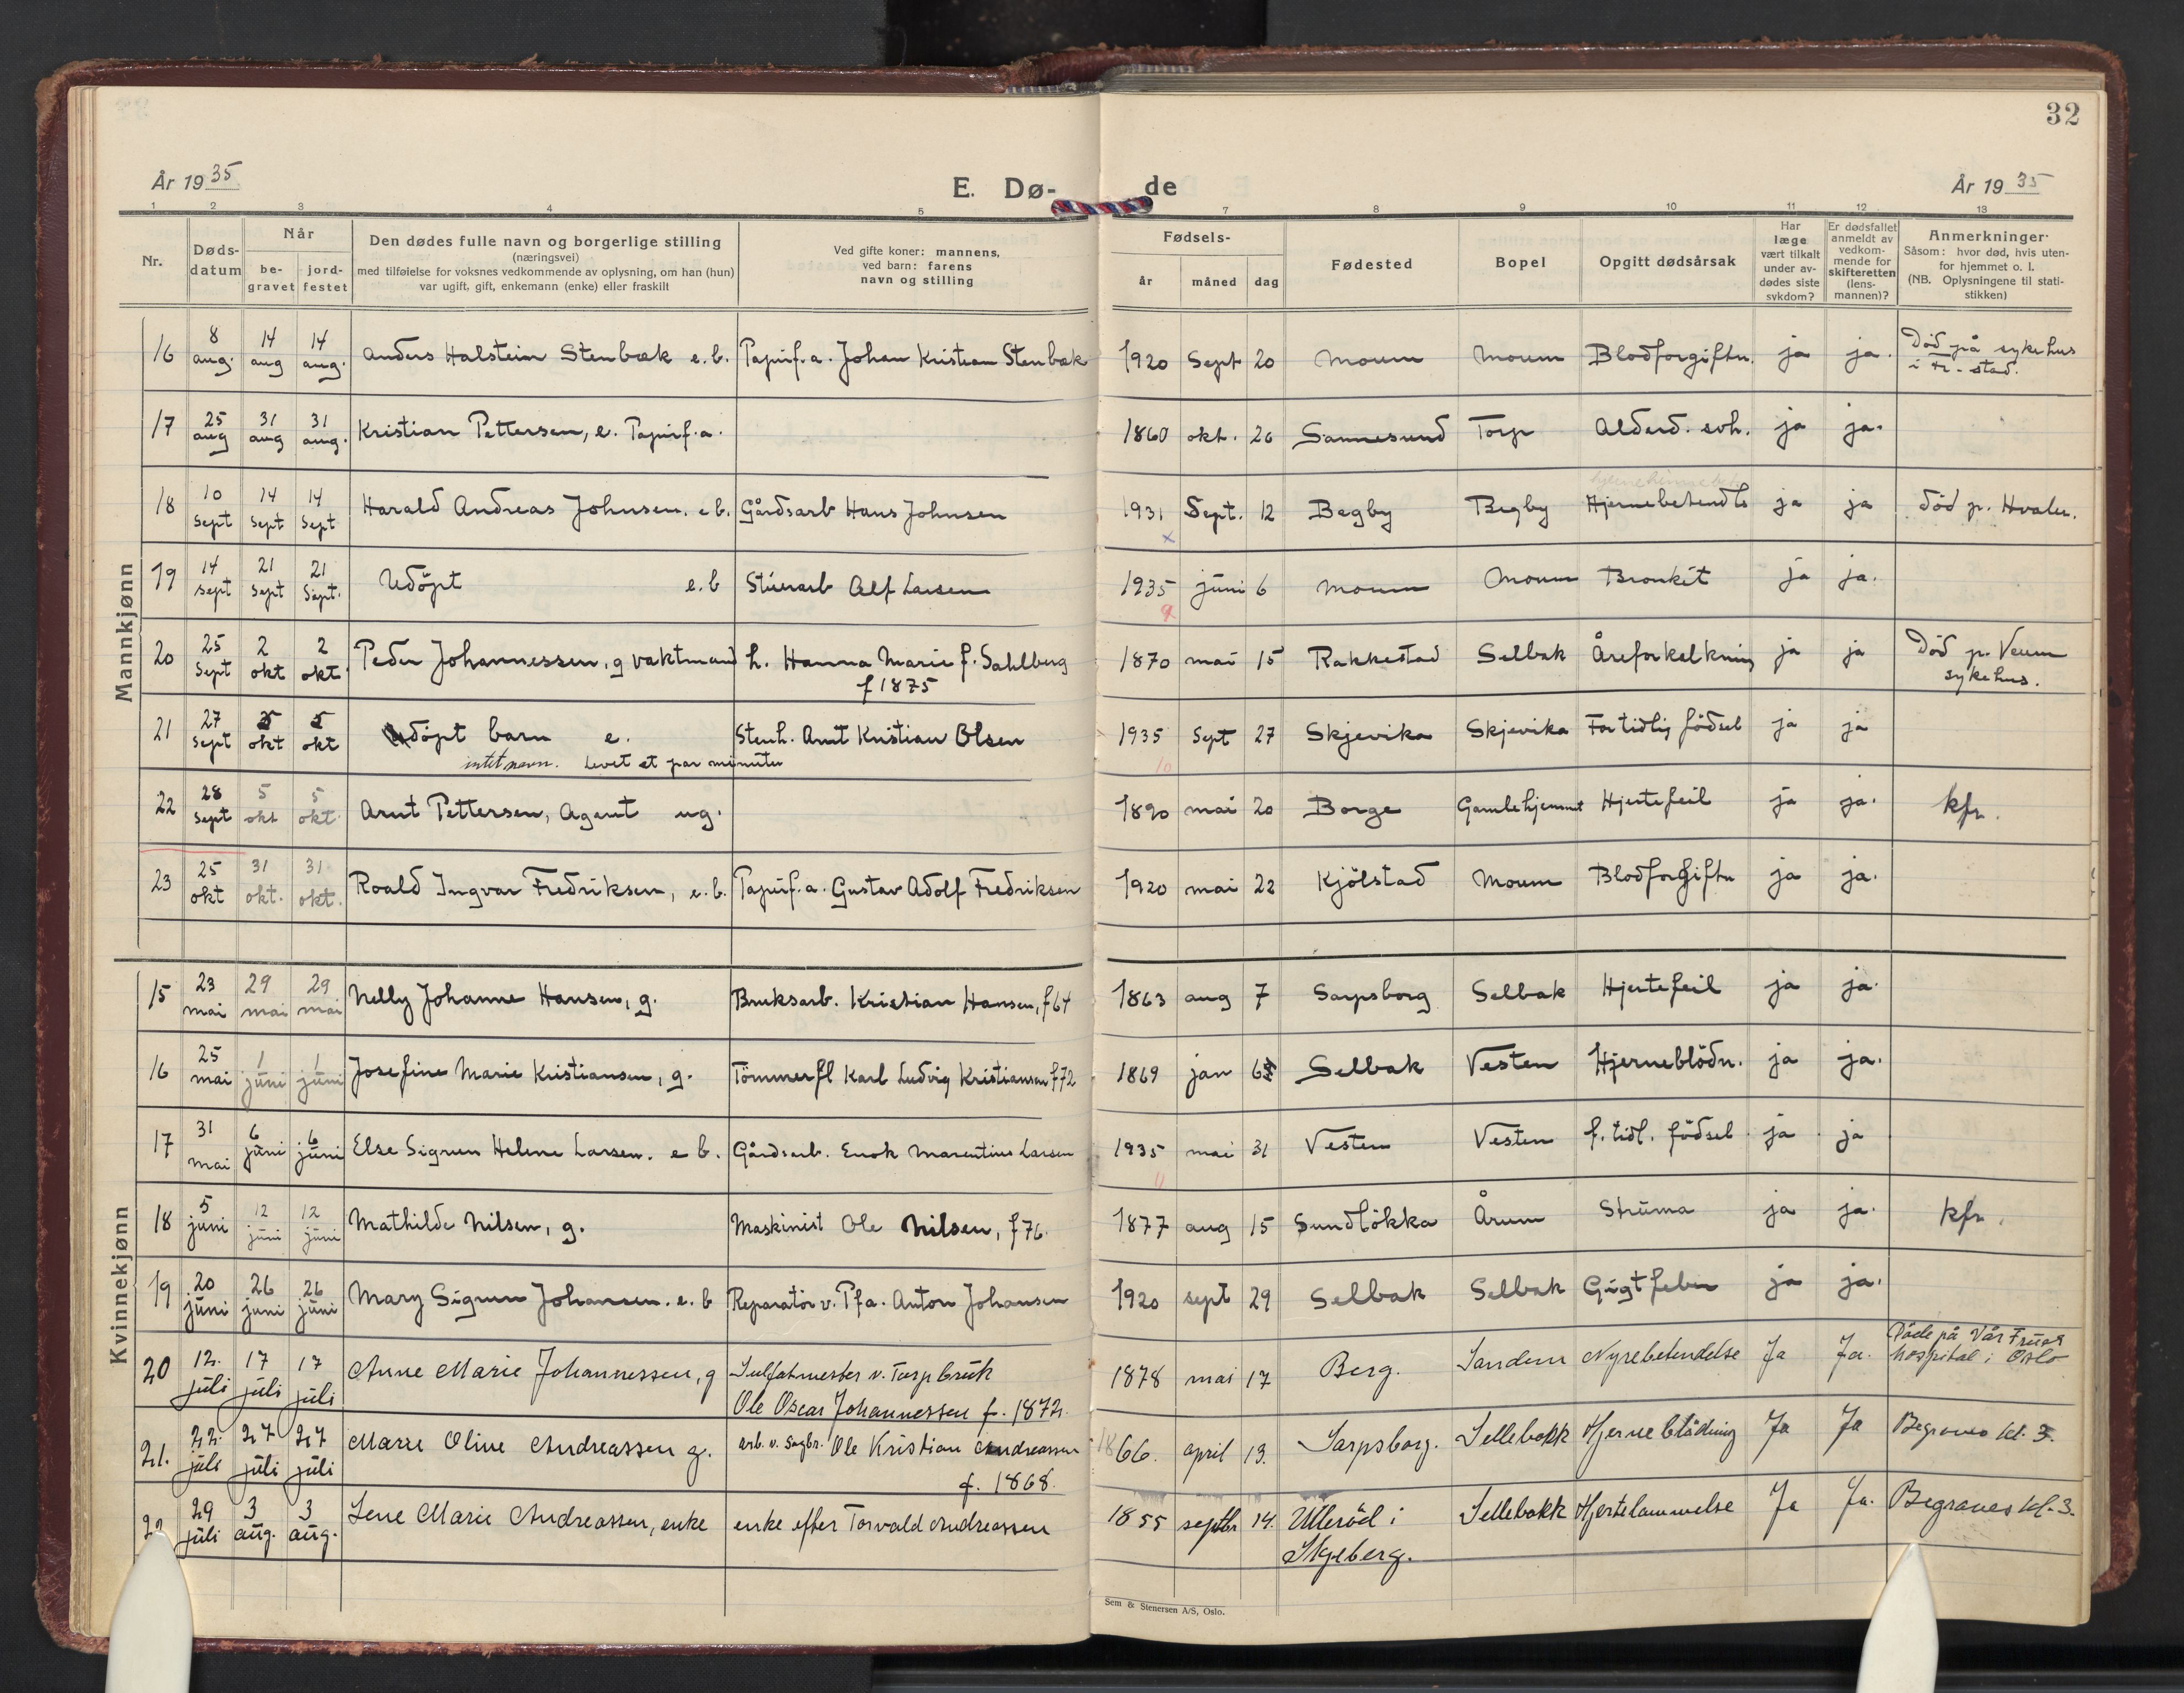 32
År 1935
E. Dø-
de
År 1935
1 2 3 4 5 7 8 9 10 11 12 13
Nr.
Døds-
datum
Når
be-
gravet
jord-
festet
Den dødes fulle navn og borgerlige stilling
(næringsvei)
med tilføielse for voksnes vedkommende av oplysning, om han (hun)
var ugift, gift, enkemann (enke) eller fraskilt
Ved gifte koner: mannens,
ved barn: farens
navn og stilling
Fødsels-
år måned dag
Fødested
Bopel
Opgitt dødsårsak
Har
læge
vært tilkalt
under av-
dødes siste
sykdom?
Er dødsfallet
anmeldt av
vedkom-
mende for
skifteretten
(lens-
mannen)?
Anmerkninger
Såsom: hvor død, hvis uten-
for hjemmet o. l.
(NB. Oplysningene til stati-
stikken)
Mannkjønn
16 8 aug. 14 aug 14 aug. Anders Halstein Stenbæk e.b. Papirf.a. Johan Kristian Stenbæk 1920 Sept 20 Moum Moum Blodforgiftn. ja ja. Död på sykehus
i Fr.stad.
17 25 aug 31 aug 31 aug. Kristian Pettersen, e. Papirf.a. 1860 okt. 26 Sannesund Torp Alderd. svh. ja ja.
18 10 sept 14 sept 14 sept Harald Andreas Johnsen. e.b. Gårdsarb Hans Johnsen 1931 Sept. 12 Begby Begby Hjernebetendls ja ja död p. Hvaler.
19 14 sept 21 sept 21 sept. Udöpt e.b Stuerarb Alf Larsen 1935 juni 6 Moum Moum Bronkit ja ja.
9
20 25 sept 2 okt 2 okt. Peder Johannessen, g vaktmand h. Hanna Marie f. Sahlberg 1870 mai 15 Rakkestad Selbak Åreforkalkning ja ja Död p. Veum
f 1875 sykehus.
21 27 sept 5 okt 5 okt Udöpt barn e. Stenh. Arnt Kristian Olsen 1935 Sept 27 Skjevika Skjevika For tidlig födsel ja ja
intet navn. Levet et par minutter 10
22 28 sept 5 okt 5 okt. Arnt Pettersen, Agent ug. 1890 mai 20 Borge Gamlehjemmet Hjertefeil ja ja. kfr.
23 25 okt 31 okt. 31 okt. Roald Ingvar Fredriksen, e.b. Papirf.a. Gustav Adolf Fredriksen 1920 mai 22 Kjölstad Moum Blodforgiftn ja ja.
Kvinnekjønn
15 23 mai 29 mai 29 mai Nelly Johanne Hansen, g. Bruksarb. Kristian Hansen, f 64 1863 aug 7 Sarpsborg Selbak Hjertefeil ja ja.
16 25 mai 1 juni 1 juni Josefine Marie Kristiansen, g. Tömmerfl Karl Ludvig Kristiansen f 72 1869 jan 6 Selbak Vesten Hjerneblödn. ja ja.
17 31 mai 6 juni 6 juni Else Sigrun Helene Larsen. e b. Gårdsarb. Enok Marentius Larsen 1935 mai 31 Vesten Vesten f. tidl. födsel ja ja
11
18 5 juni 12 juni 12 juni Mathilde Nilsen, g. Maskinist Ole Nilsen, f 76. 1877 aug 15 Sundlökka Årum Struma ja ja. kfr.
19 20 juni 26 juni 26 juni Mary Sigrun Johansen. e. b Reparatör v. Pfa. Anton Johansen 1920 sept 29 Selbak Selbak Gigtfeber ja ja.
20 12. juli 17 juli 17 juli Anne Marie Johannessen, g Sulfatmester v. Torp bruk 1878 mai 17 Berg. Sandem Nyrebetendelse Ja Ja. Döde på Vår Frues
Ole Oscar Johannessen f. 1872. hospital i Oslo
21. 22. juli 27 juli 27 juli Marie Olive Andreassen g. arb. v. Sagbr. Ole Kristian Andreassen 1866. april 13. Sarpsborg. Sellebakk Hjerneblödning Ja Ja Begraves kl. 3.
f. 1868.
29 juli 3 aug. 3 aug. Lene Marie Andreassen, enke enke efter Torvald Andreassen 1855 septbr 14. Ulleröd i Sellebakk Hjertelammelse Ja Ja. Begraves kl. 3.
Skjeberg.
Sem & Stenersen A/S, Oslo.